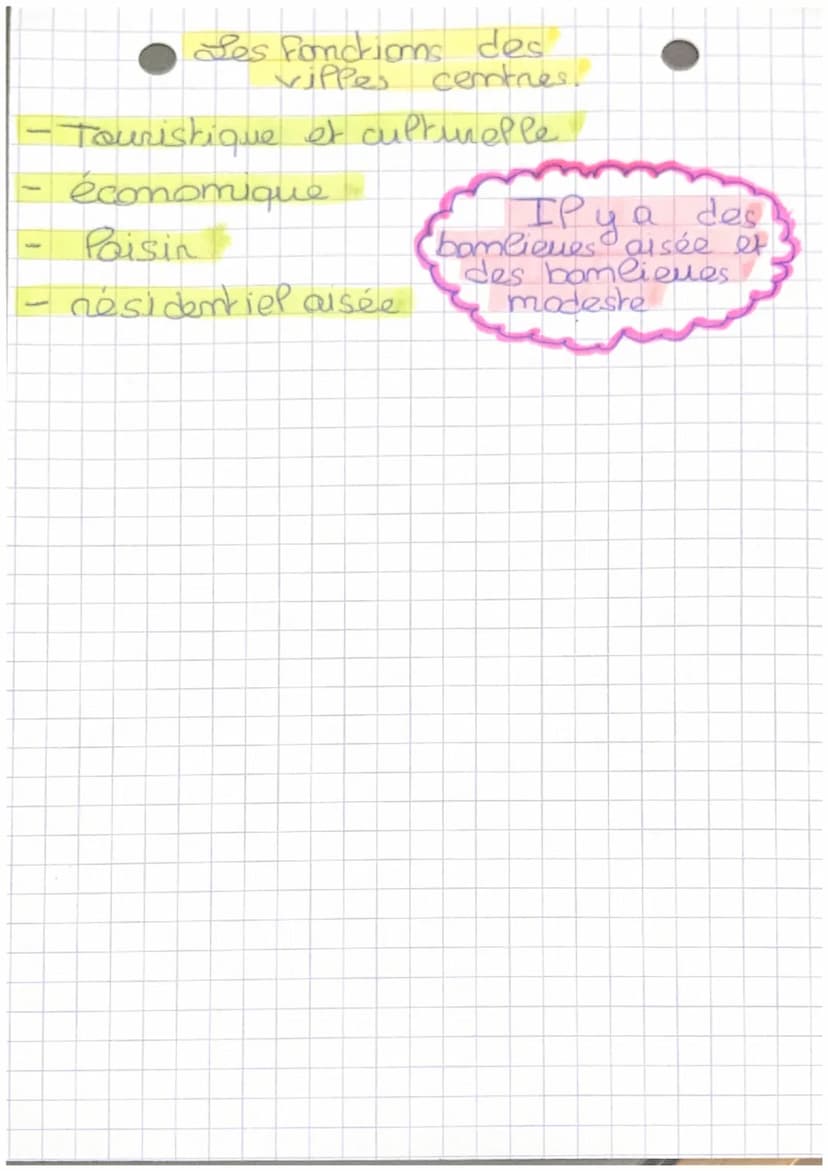 Les fonctions des
villes centres.
- Touristique et culturelle
- économique
- loisir
- résidentiel aisée
Il y a des
banlieues aisée et
des banlieues
modeste